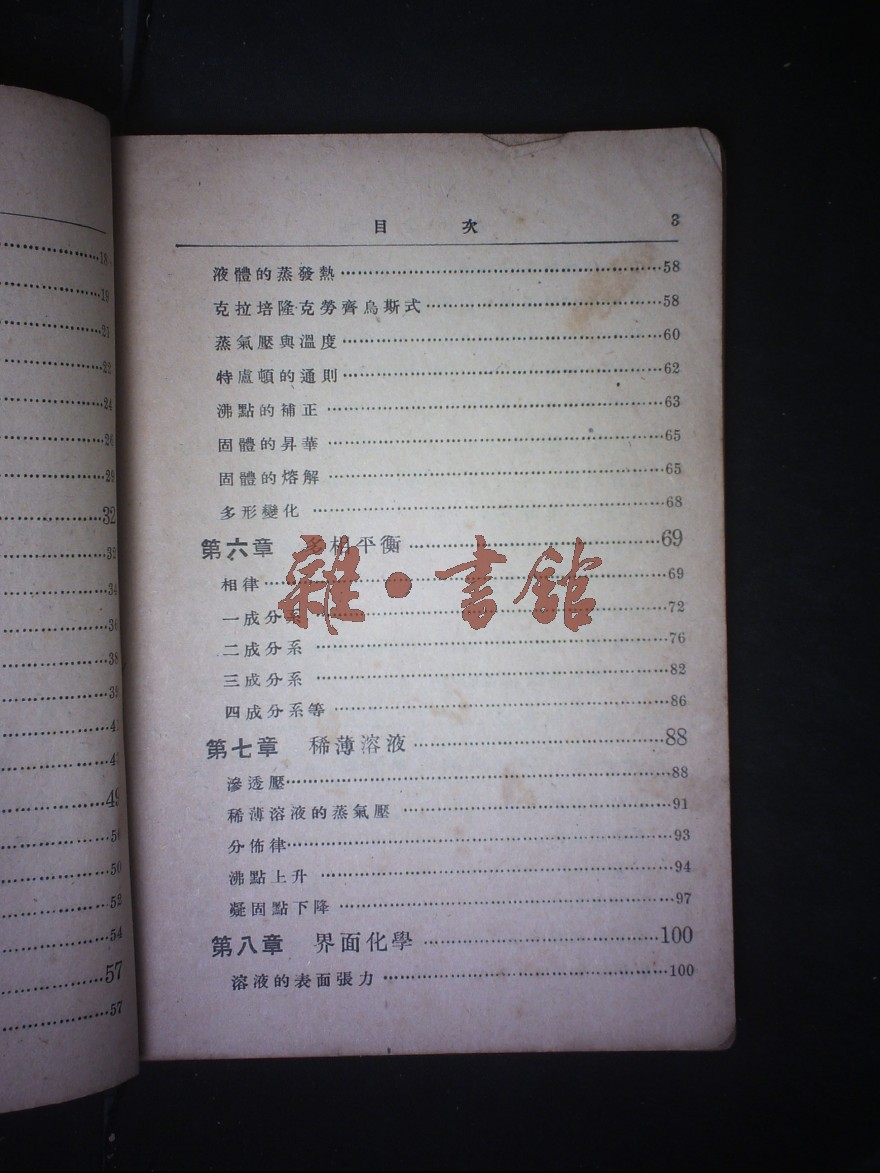 18
19
21
22
24
26
29
32
32
34
36
38
39
50
52
54
57
57
目 次 3
液體的蒸發熱……58
克拉培隆克勞齊烏斯式……58
蒸氣壓與溫度……60
特盧頓的通則……62
沸點的補正……63
固體的昇華……65
固體的熔解……65
多形變化……68
第六章 多相平衡……69
相律……69
一成分系……72
二成分系……76
三成分系……82
四成分系等……86
第七章 稀薄溶液……88
滲透壓……88
稀薄溶液的蒸氣壓……91
分佈律……93
沸點上升……94
凝固點下降……97
第八章 界面化學……100
溶液的表面張力……100
雜·書館